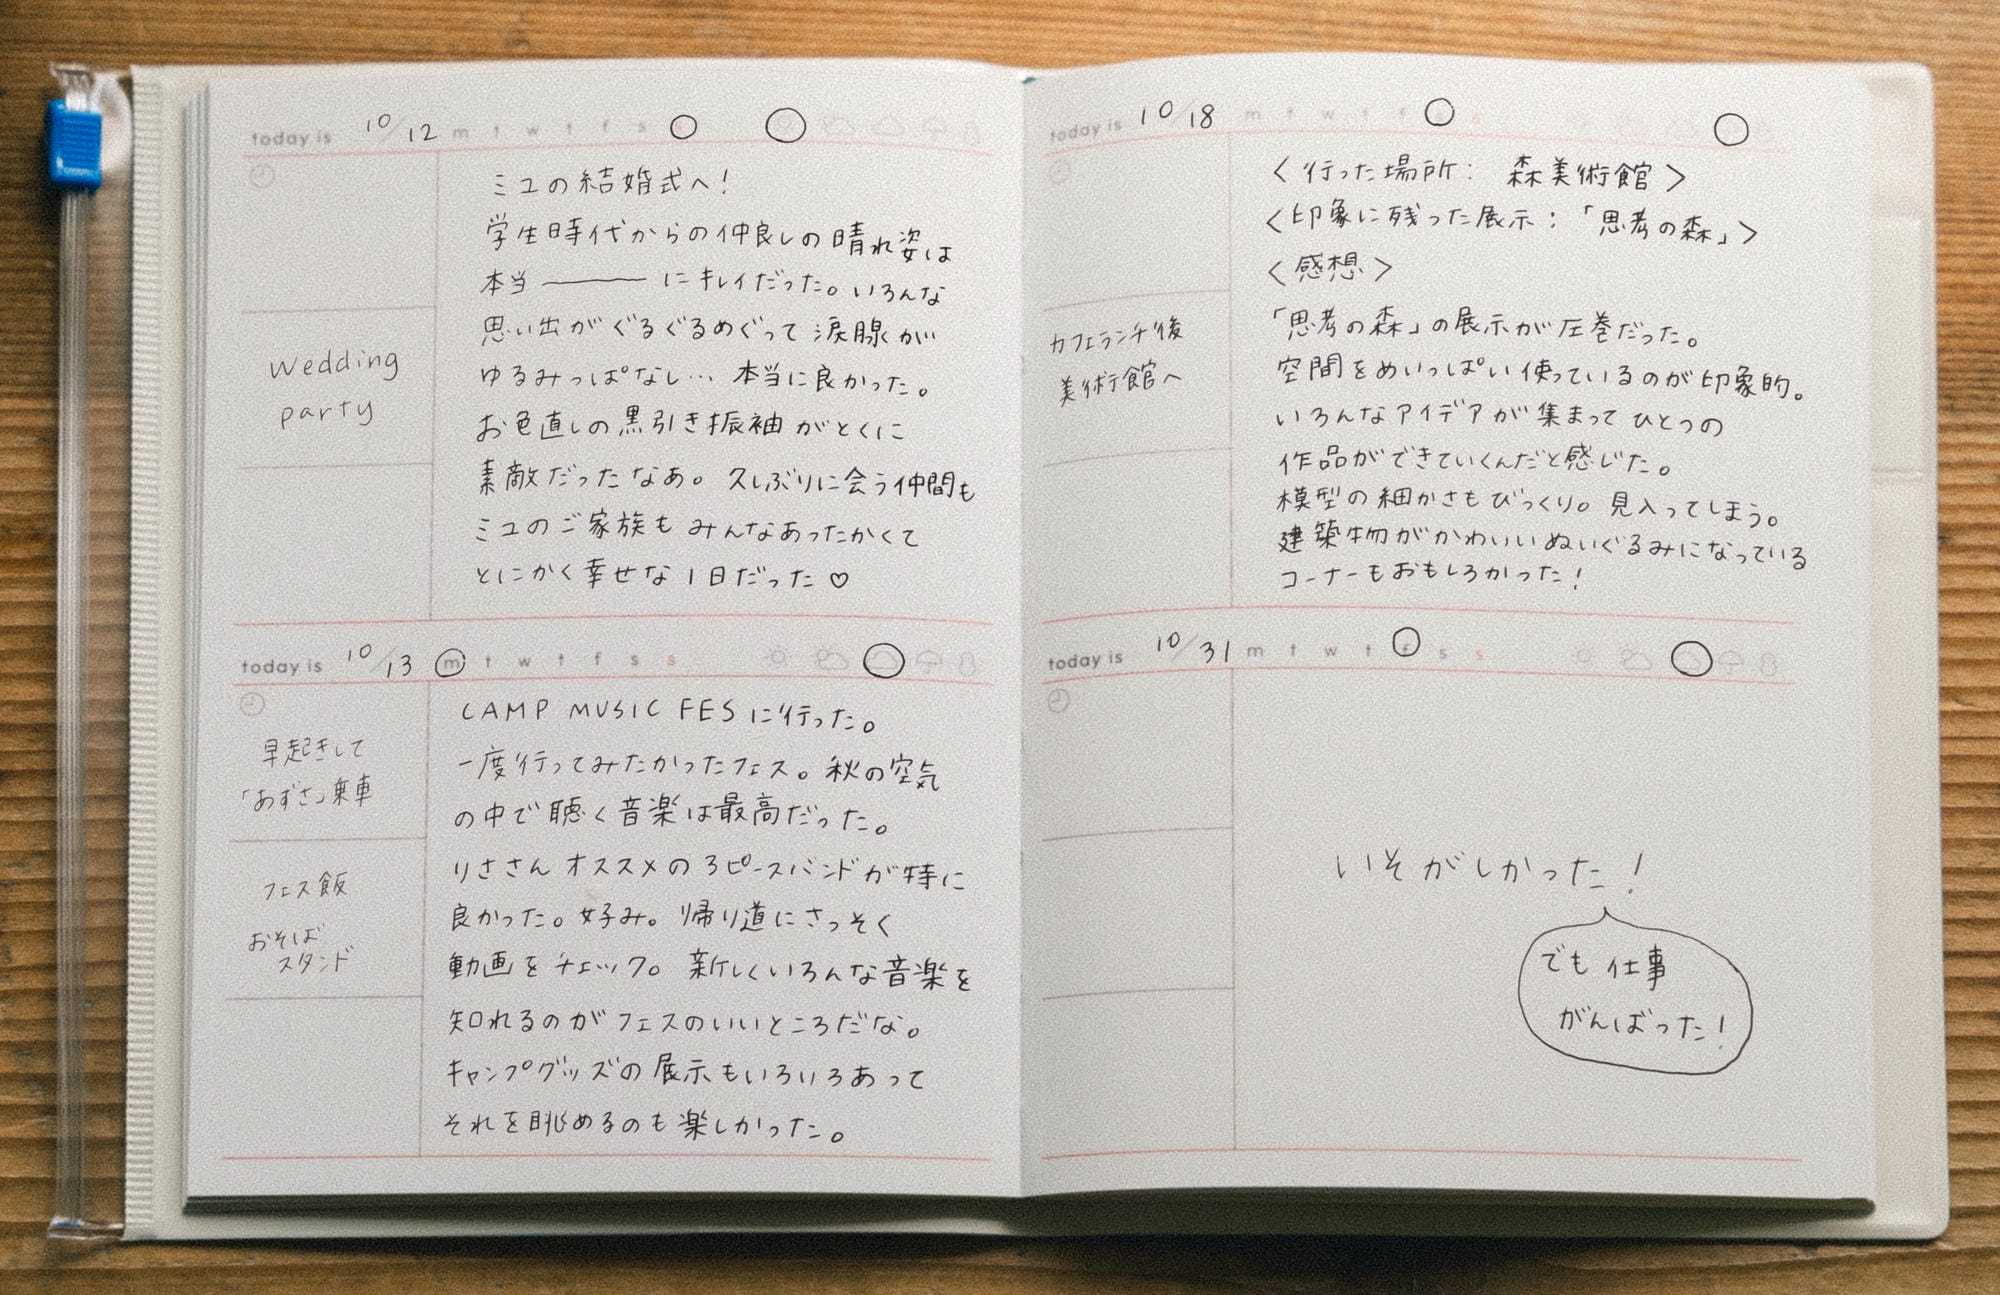 today is 10/12 m t w t f s
Wedding
party
ミユの結婚式へ!
学生時代からの仲良しの晴れ姿は
本当――にキレイだった。いろんな
思い出がぐるぐるめぐって涙腺が
ゆるみっぱなし… 本当に良かった。
お色直しの黒引き振袖がとくに
素敵だったなあ。久しぶりに会う仲間も
ミユのご家族もみんなあったかくて
とにかく幸せな1日だった♡
today is 10/13 m t w t f s s
早起きして
「あずさ」乗車
フェス飯
おそば
スタンド
CAMP MUSIC FESに行った。
一度行ってみたかったフェス。秋の空気
の中で聴く音楽は最高だった。
りささんオススメの3ピースバンドが特に
良かった。好み。帰り道にさっそく
動画をチェック。新しくいろんな音楽を
知れるのがフェスのいいところだな。
キャンプグッズの展示もいろいろあって
それを眺めるのも楽しかった。
today is 10/18 m t w t f s
カフェランチ後
美術館へ
<行った場所: 森美術館>
<印象に残った展示:「思考の森」>
<感想>
「思考の森」の展示が圧巻だった。
空間をめいっぱい使っているのが印象的。
いろんなアイデアが集まってひとつの
作品ができていくんだと感じた。
模型の細かさもびっくり。見入ってしまう。
建築物がかわいいぬいぐるみになっている
コーナーもおもしろかった!
today is 10/31 m t w t f s s
いそがしかった!
でも仕事
がんばった!